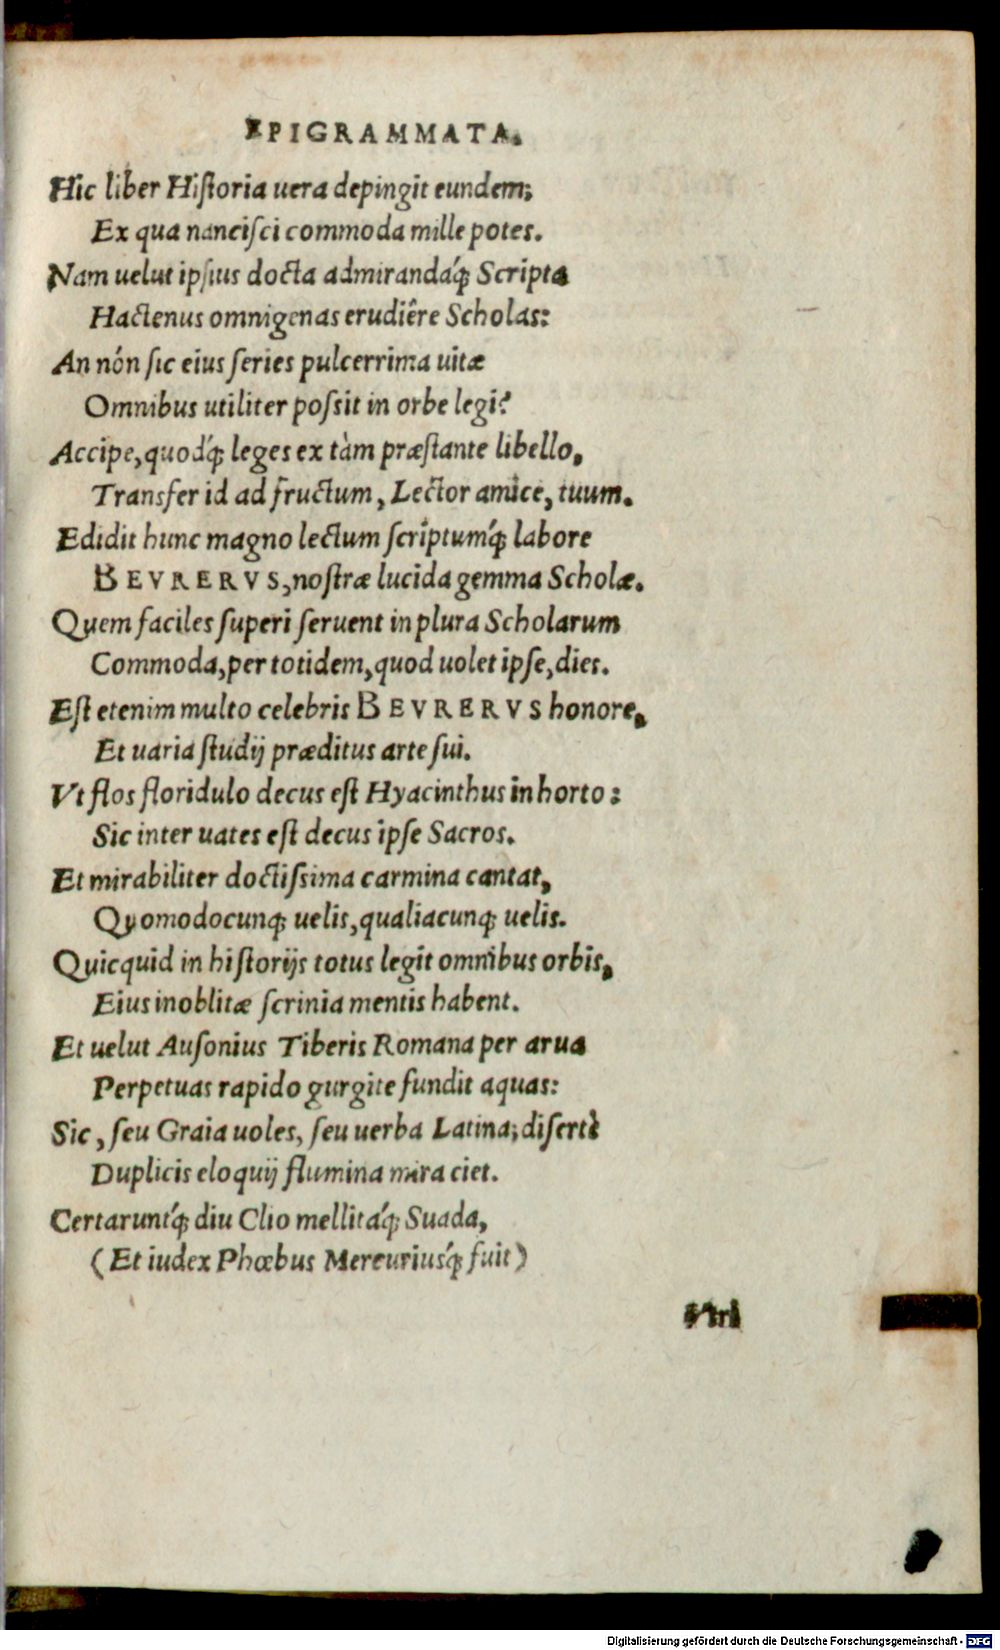 EPIGRAMMATA.
Hic liber Hiſtoria uera depingit eundem;
Ex qua nanciſci commoda mille potes.
Nam uelut ipſius docta admirandáq́; Scripta
Hactenus omnigenas erudiêre Scholas:
An nón ſic eius ſeries pulcerrima uitæ
Omnibus utiliter poſsit in orbe legi?
Accipe, quodq́; leges ex tàm præſtante libello,
Transfer id ad fructum, Lector amice, tuum.
Edidit hunc magno lectum ſcriptumq́; labore
BEVRERVS, noſtræ lucida gemma Scholæ.
Quem faciles ſuperi ſeruent in plura Scholarum
Commoda, per totidem, quod uolet ipſe, dies.
Eſt etenim multo celebris BEVRERVS honore,
Et uaria ſtudij præditus arte ſui.
Vt flos floridulo decus eſt Hyacinthus in horto:
Sic inter uates eſt decus ipſe Sacros.
Et mirabiliter doctiſsima carmina cantat,
Quomodocunq; uelis, qualiacunq; uelis.
Quicquid in hiſtorijs totus legit omnibus orbis,
Eius inoblitæ ſcrinia mentis habent.
Et uelut Auſonius Tiberis Romana per arua
Perpetuas rapido gurgite fundit aquas:
Sic, ſeu Graia uoles, ſeu uerba Latina; diſertè
Duplicis eloquij flumina mira ciet.
Certaruntq́; diu Clio mellitáq́; Suada,
(Et iudex Phœbus Mercuriusq́; fuit)
Vtri
Digitalisierung gefördert durch die Deutsche Forschungsgemeinschaft - DFG